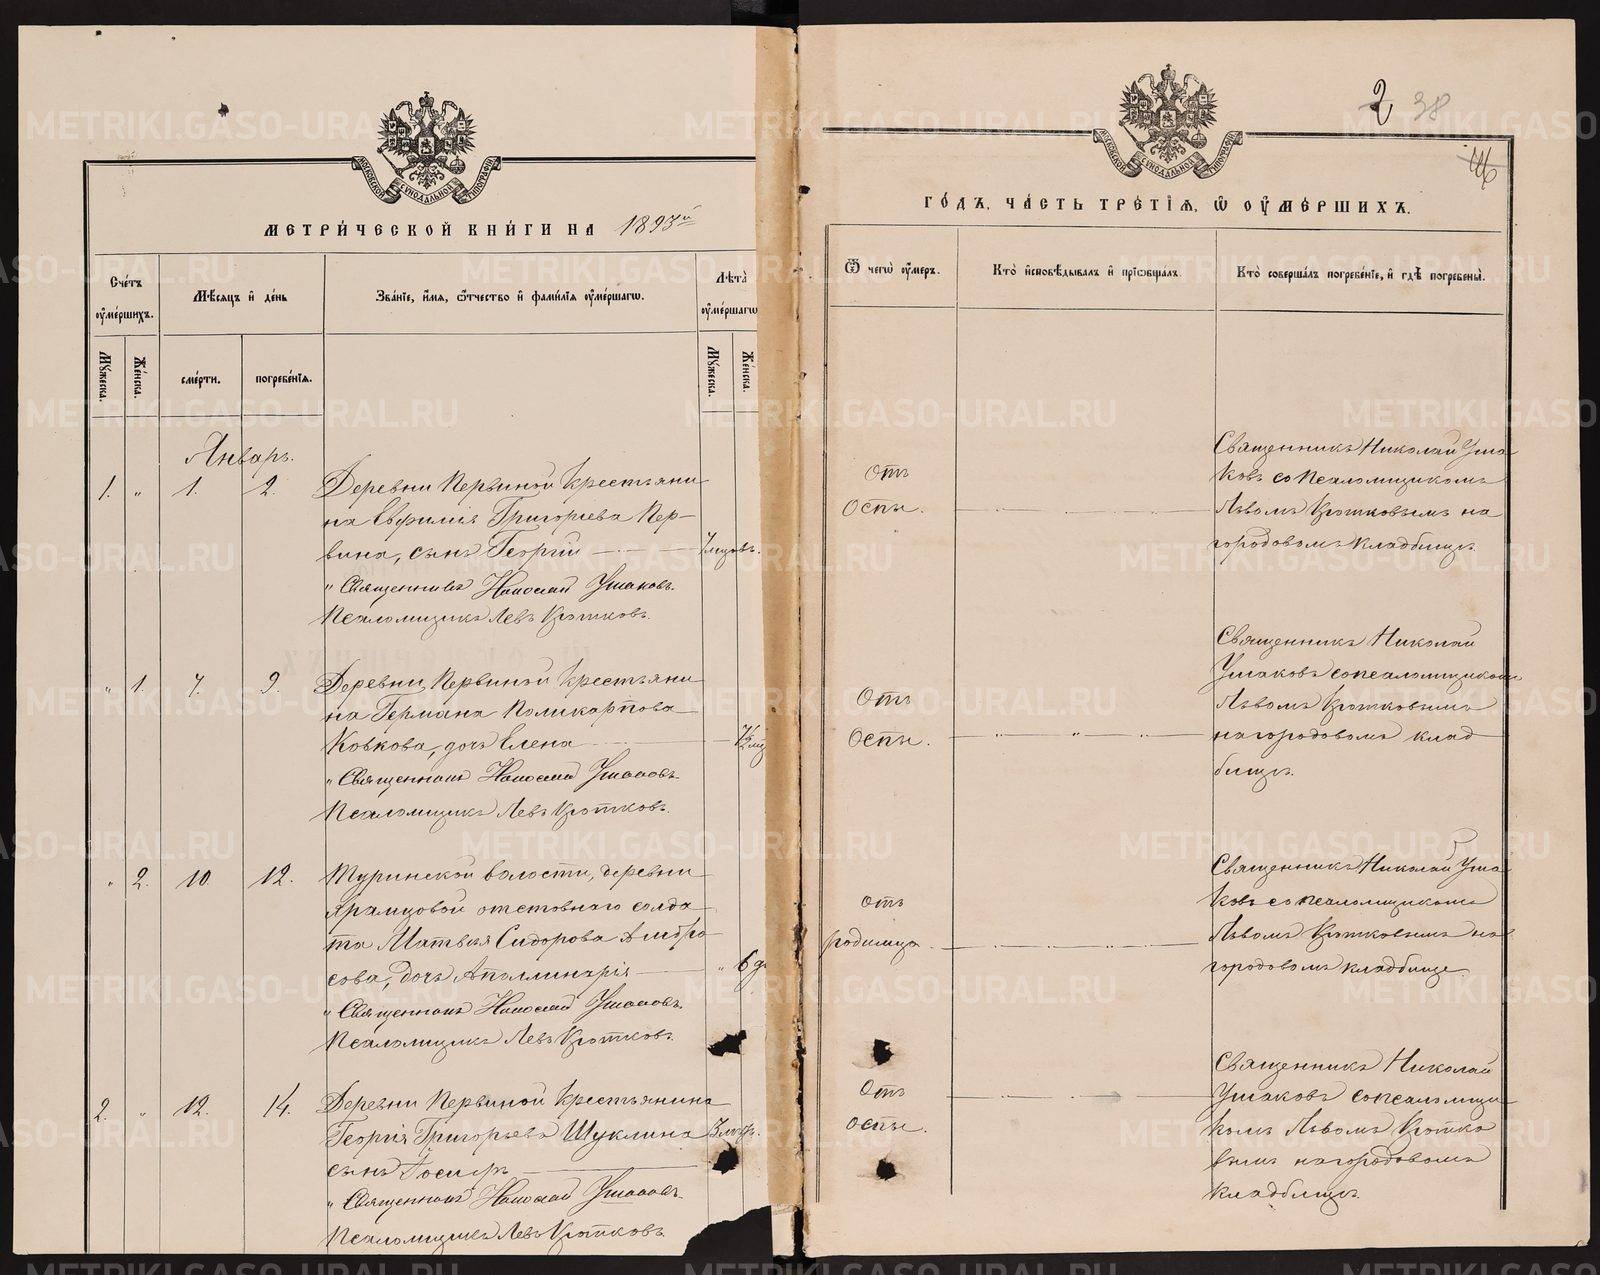 МЕТРИ́ЧЕСКОЙ КНИ́ГИ НА 1893й
Сче́тъ ᲂу҆ме́ршихъ.
Мѣ́сяцъ и҆ де́нь
Зва́нїе, и҆́мя, ѻ҆́тчество и҆ фами́лїя ᲂу҆ме́ршагѡ.
Лѣ́та ᲂу҆ме́ршагѡ
Мꙋ́жеска.
Же́нска.
сме́рти.
погребе́нїя.
Мꙋ́жеска.
Же́нска.
Январь.
1. " 1. 2. Деревни Первиной крестьяни
на Евфимія Григорьева Пер-
вина, сынъ Георгій 7 мѣсцовъ.
" Священникъ Николай Ушаковъ.
Псаломщикъ Левъ Кротковъ.
" 1. 7. 9. Деревни Первиной крестьяни
на Германа Поликарпова
Ковкова, дочь Елена
" Священникъ Николай Ушаковъ.
Псаломщикъ Левъ Кротковъ.
" 2. 10. 12. Туринской волости, деревни
отставного солда
та Матвѣя Сидорова Амбро
сова, дочь Аполлинарія " 6 д
" Священникъ Николай Ушаковъ.
Псаломщикъ Левъ Кротковъ.
2. " 12. 14. Деревни Первиной крестьянина
Георгія Григорьева Шуклина
сынъ Іосифъ
" Священникъ Николай Ушаковъ.
Псаломщикъ Левъ Кротковъ.
2 38
МОСКОВСКОЙ СѴНОДАЛЬНОЙ ТИПОГРАФІИ
ГО́ДЪ, ЧА́СТЬ ТРЕ́ТІЯ, Ѽ ОУ҆МЕ́РШИХЪ.
Ѿ чегѡ̀ ᲂу҆́меръ.
Кто̀ и҆сповѣ́дывалъ и҆ прїѻбща́лъ.
Кто̀ соверша́лъ погребе́нїе, и҆ гдѣ̀ погребены̀.
Отъ
Оспы.
Священникъ Николай Уша
ковъ со псаломщикомъ
Львомъ Кротковымъ на
городовомъ кладбищѣ.
Отъ
Оспы.
Священникъ Николай
Ушаковъ со псаломщикомъ
Львомъ Кротковымъ
на городовомъ клад
бищѣ.
отъ
родимца.
Священникъ Николай Уша
ковъ со псаломщикомъ
Львомъ Кротковымъ на
городовомъ кладбище
Отъ
оспы.
Священникъ Николай
Ушаковъ со псаломщи
комъ Львомъ Кротко
вымъ на городовомъ
кладбищѣ.
METRIKI.GASO-URAL.RU